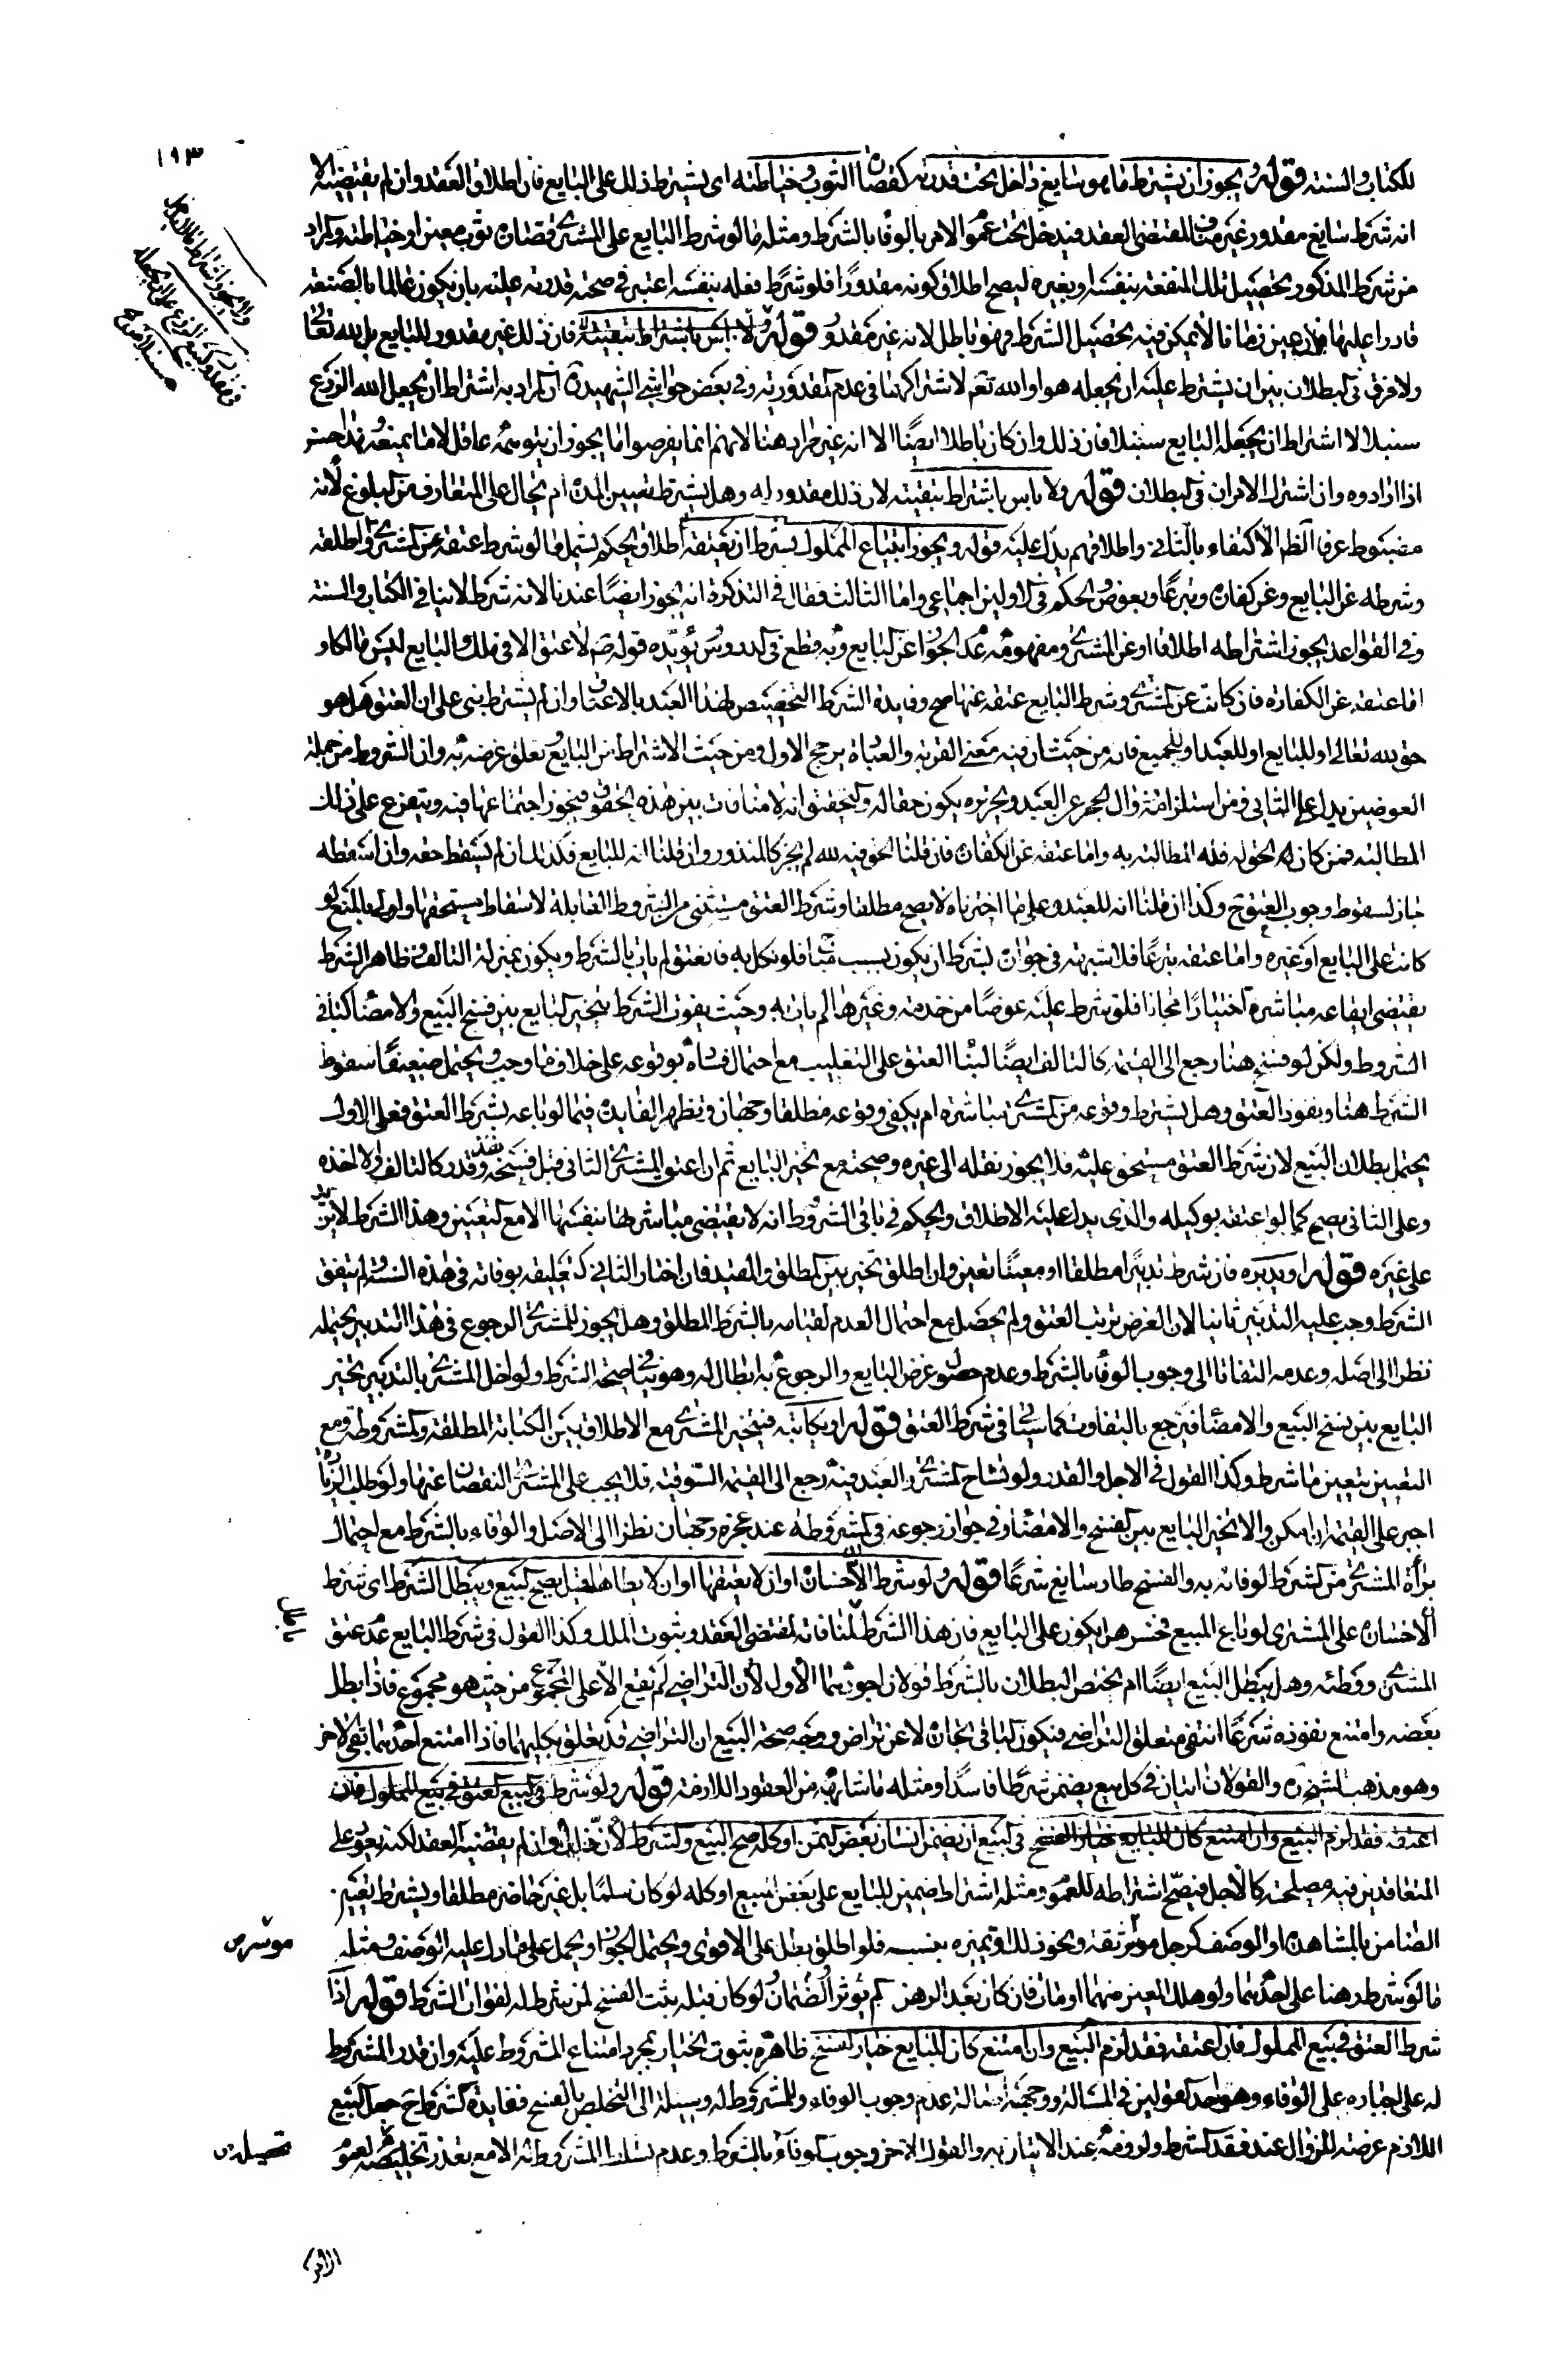 ١٩٣
للكتاب والسنة قوله ويجوز ان يشترط ما هو سايغ داخل تحت قدرته كقصارة الثوب وخياطته اى يشترط ذلك على البايع فان اطلاق العقد وان لم يقتضيه الا
انه شرط سايغ مقدور غير مناف لمقتضى العقد فيدخل تحت عموم الامر بالوفاء بالشرط ومثله ما لو شرط البايع على المشترى قصارة ثوب معين او خياطته والمراد
من شرط المذكور تحصيل تلك المنفعة بنفسه او بغيره ليصح اطلاق كونه مقدورا فلو شرط فعله بنفسه اعتبر فى صحته قدرته عليه بان يكون عالما بالصنعة
قادرا عليها فلو عين زمانا لا يمكن فيه تحصيل الشرط فهو باطل لانه غير مقدور قوله ولا باس باشتراط تبقيته فان ذلك غير مقدور للبايع بل لله تعالى
ولا فرق فى البطلان بين ان يشترط عليه ان يجعله هو او الله تعم لاشتراكهما فى عدم المقدورية وفى بعض حواشى الشهيد ره ان المراد به اشتراط ان يجعل الله الزرع
سنبلا لا اشتراط ان يجعله البايع سنبلا فان ذلك وان كان باطلا ايضا الا انه غير مراد هنا لانهم انما يفرضوا ما يجوز ان يتوهمه عاقل لا ما يمتنع وهذا حسن
اذا ارادوه وان اشترك الامران فى البطلان قوله ولا باس باشتراط تبقيته لان ذلك مقدور له وهل يشترط تعيين المدة ام يحال على المتعارف من البلوغ لانه
مضبوط عرفا الظم الاكتفاء بالثانى واطلاقهم يدل عليه قوله ويجوز ابتياع المملوك بشرط ان يعتقه اطلاق الحكم يشمل ما لو شرط عتقه عن المشترى واطلقه
وشرطه عن البايع وعن كفارة وتبرعا وبعوض والحكم فى الاولين اجماعى واما الثالث فقال فى التذكرة انه يجوز ايضا عندنا لانه شرط لا ينافى الكتاب والسنة
وفى القواعد يجوز اشتراطه اطلاقا او عن المشترى ومفهومه عدم الجواز عن البايع وبه قطع فى الدروس ويؤيده قوله صم لا عتق الا فى ملك والبايع ليس مالكا و
اما عتقه عن الكفارة فان كانت عن المشترى وشرط البايع عتقه عنها صح وفايدة الشرط التخصيص لهذا العبد بالاعتاق وان لم يشترط بنى على ان العتق هل هو
حق لله تعالى او للبايع او للعبد او للجميع فانه من حيث ان فيه معنى القربة والعبادة يرجح الاول ومن حيث الاشتراط من البايع وتعلق غرضه به وان الشروط من جملة
العوضين يدل على الثانى ومن استلزامه زوال الحجر عن العبد وتحريره يكون حقا له والتحقيق انه لا منافات بين هذه الحقوق فيجوز اجتماعها فيه ويتفرع على ذلك
المطالبة فمن كان له الحق له فله المطالبة به واما عتقه عن الكفارة فان قلنا الحق فيه لله لم يجز كالمنذور وان قلنا انه للبايع فكذلك ان لم يسقط حقه وان اسقطه
جاز لسقوط وجوب العتق ح وكذا ان قلنا انه للعبد وعلى ما اخترناه لا يصح مطلقا وشرط العتق مستثنى من الشروط القابلة لاسقاط مستحقها واولى بالمنع لو
كانت على البايع او غيره واما عتقه تبرعا فلا شبهة فى جوازه لشرط ان يكون بسبب مباشرته فلو نكل به فانعتق لم يات بالشرط ويكون بمنزلة التالف وظاهر الشرط
يقتضى ايقاعه مباشرة اختيارا مجانا فلو شرط عليه عوضا من خدمة وغيرها لم يات به وحيث يفوت الشرط يتخير البايع بين فسخ البيع والامضاء كباقى
الشروط ولكن لو فسخ هنا رجع الى القيمة كالتالف ايضا لبناء العتق على التغليب مع احتمال فساده لوقوعه على خلاف ما وجب ويحتمل ضعيفا سقوط
الشرط هنا ونفوذ العتق وهل يشترط وقوعه من المشترى مباشرة ام يكفى وقوعه مطلقا وجهان وتظهر الفايدة فيما لو باعه بشرط العتق فعلى الاول
يحتمل بطلان البيع لان شرط العتق مستحق عليه فلا يجوز نقله الى غيره وصحته مع تخير البايع ثم ان اعتق المشترى الثانى قبل فسخه نفذ وقدر كالتالف والا اخذه
وعلى الثانى يصح كما لو اعتقه بوكيله والذى يدل عليه الاطلاق والحكم فى باقى الشروط انه لا يقتضى مباشرتها بنفسها الا مع التعيين وهذا الشرط لا يزيد
على غيره قوله او يدبره فان شرط تدبيرا مطلقا او معينا تعين وان اطلق تخير بين المطلق والمقيد فان اختار الثانى كتعليقه بوفاته فى هذه السنة ولم يتفق
الشرط وجب عليه التدبير ثانيا لان الغرض ترتب العتق ولم يحصل مع احتمال العدم لقيامه بالشرط المطلق وهل يجوز للمشترى الرجوع فى هذا التدبير يحتمله
نظرا الى اصله وعدمه التفاتا الى وجوب الوفاء بالشرط وعدم حصول غرض البايع والرجوع به ابطال له وهو ينافى صحة الشرط ولو اخل المشترى بالتدبير تخير
البايع بين فسخ البيع والامضاء فيرجع بالتفاوت كما سياتى فى شرط العتق قوله او يكاتبه فيتخير المشترى مع الاطلاق بين الكتابة المطلقة والمشروطة ومع
التعيين يتعين ما شرط وكذا القول فى الاجل والقدر ولو تشاح المشترى والعبد فيه رجع الى القيمة السوقية فلا يجب على المشترى النقصان عنها ولو طلب الزيادة
اجبر على القيمة ان امكن والا تخير البايع بين الفسخ والامضاء وفى جواز رجوعه فى المشروطة عند عجزه وجهان نظرا الى الاصل والوفاء بالشرط مع احتمال
برأة المشترى من الشرط لوفائه به والفسخ طار سايغ شرعا قوله ولو شرط الا خسارة او ان لا يعتقها او ان لا يطأها قيل يصح البيع ويبطل الشرط اى شرط
الا خسارة على المشترى لو باع المبيع فخسر هل يكون على البايع فان هذا الشرط لمنافاته لمقتضى العقد وثبوت الملك وكذا القول فى شرط البايع عدم عتق
المشترى ووطئه وهل يبطل البيع ايضا ام يختص البطلان بالشرط قولان اجودهما الاول لان التراضى لم يقع الا على المجموع من حيث هو مجموع فاذا بطل
بعضه وامتنع نفوذه شرعا انتفى متعلق التراضى فيكون الباقى تجارة لا عن تراض ووجه صحة البيع ان التراضى قد تعلق بكليهما فاذا امتنع احدهما بقى الاخر
وهو مذهب الشيخ ره والقولان اتيان فى كل بيع يضمن شرطا فاسدا ومثله ما شابهه من العقود اللازمة قوله ولو شرط فى البيع العتق فى بيع المملوك فان
اعتقه فقد لزم البيع وان امتنع كان للبايع خيار الفسخ فى البيع ان يضمن انسان بعض الثمن او كله صح البيع والشرط لان ذلك وان لم يقتضيه العقد لكنه يعود على
المتعاقدين فيه مصلحة كالاجل فيصح اشتراطه للعموم ومثله اشتراط ضمين للبايع على بعض المبيع او كله لو كان سلما بل غير حاضر مطلقا ويشترط تعيين
الضامن بالمشاهدة او الوصف كرجل موسر ثقة ونحو ذلك وتميزه بنسبه فلو اطلق بطل على الاقوى ويحتمل الجواز ويحمل على ما دل عليه الوصف ومثله
ما لو شرط رهنا على احدهما ولو هلك المعين منهما او مات فان كان بعد الرهن لم يؤثر والضمان ولو كان قبله يثبت الفسخ لمن شرط له لفوات الشرط قوله اذا
شرط العتق فى بيع المملوك فان اعتقه فقد لزم البيع وان امتنع كان للبايع خيار الفسخ ظاهره ثبوت الخيار بمجرد امتناع المشروط عليه وان قدر المشروط
له على اجباره على الوفاء وهو احد القولين فى المسالة ووجهه اصالة عدم وجوب الوفاء وللمشروط له وسيلة الى التخلص بالفسخ ففايدة الشرط ح جعل البيع
اللازم عرضة للزوال عند فقد الشرط ولزومه عند الاتيان به والقول الاخر وجوب الوفاء بالشرط وعدم تسلط المشروط له الا مع تعذر تحصيله لعموم
موسر ص
تحصيله ص